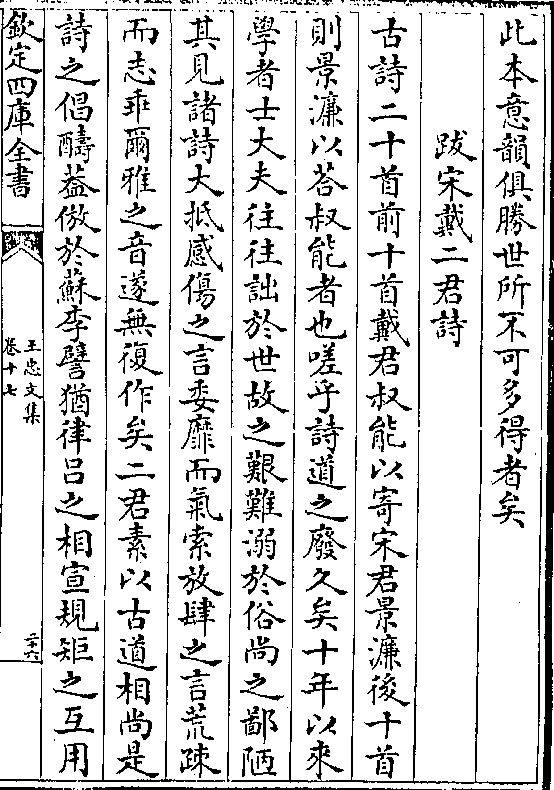 此本意韻俱勝世所不可多得者矣
跋宋戴二君詩
古詩二十首前十首戴君叔能以寄宋君景濂後十首
則景濂以荅叔能者也嗟乎詩道之廢久矣十年以來
學者士大夫往往詘於世故之艱難溺於俗尚之鄙陋
其見諸詩大抵感傷之言委靡而氣索放肆之言荒疎
而志乖爾雅之音遂無復作矣二君素以古道相尚是
詩之倡酬葢倣於蘇李譬猶律呂之相宣規矩之互用
欽定四庫全書
王忠文集
卷十七
二十六